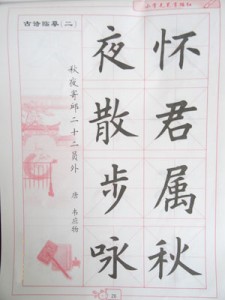 怀君属秋
夜散步咏
古诗临摹（二）
秋夜寄邱二十二员外
唐 韦应物